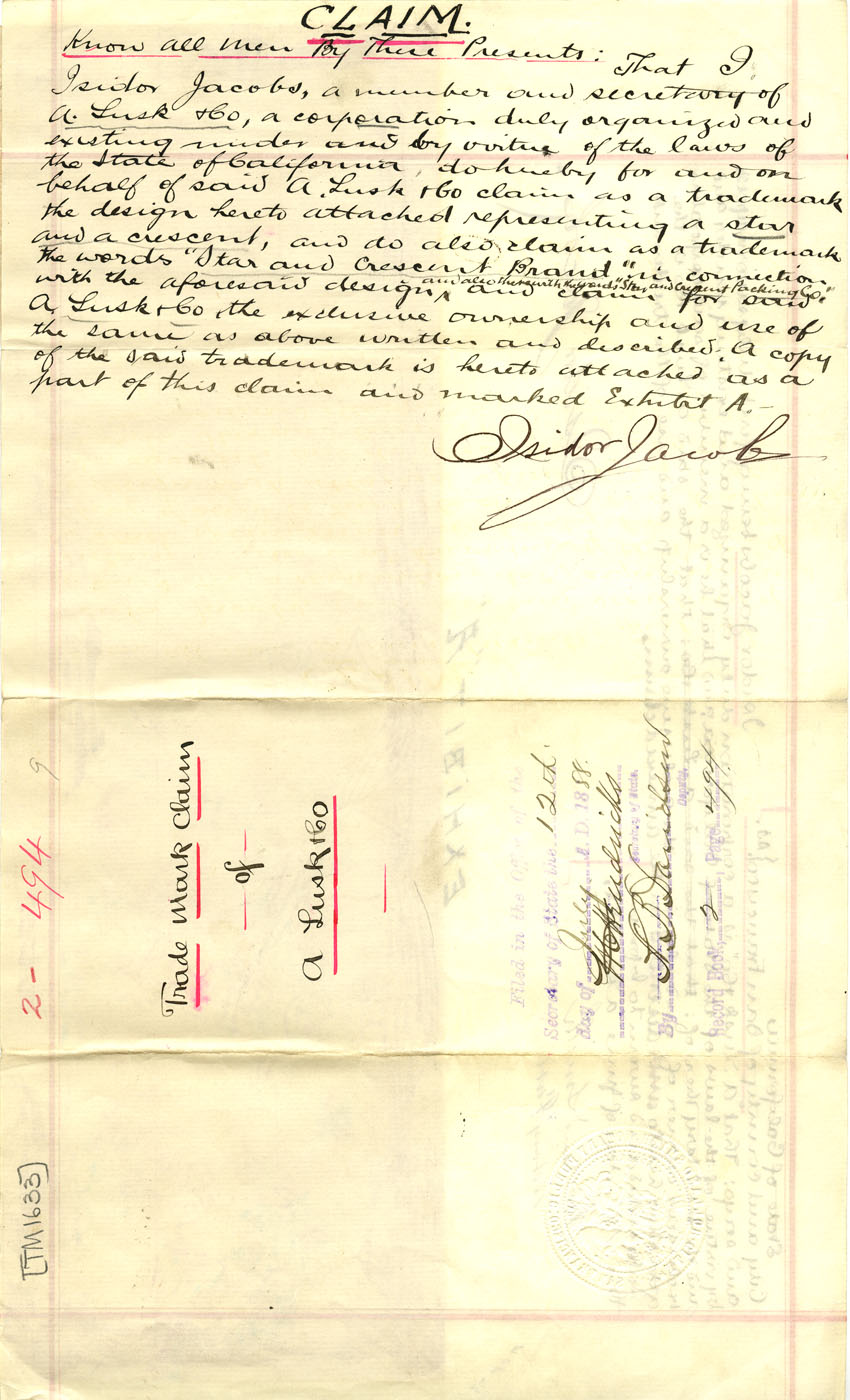 CLAIM.
Know all men By These Presents: That I
Isidor Jacobs, a member and secretary of
A. Lusk & Co, a corporation duly organized and
existing under and by virtue of the laws of
the State of California, do hereby for and on
behalf of said A. Lusk & Co claim as a trademark
the design hereto attached representing a star
and a crescent, and do also claim as a trademark
the words "Star and Crescent Brand" in connection
and also therewith the words "Star and Crescent Packing Co."
with the aforesaid design, and claim for said
A. Lusk & Co, the exclusive ownership and use of
the same as above written and described. A copy
of the said trademark is hereto attached as a
part of this claim and marked Exhibit A.-
Isidor Jacobs
2- 494
9
Trade Mark Claim
-of-
A Lusk & Co
Filed in the Office of the
Secretary of State the 12th
day of July A.D. 1888.
Secretary of State.
By Davidson
Deputy
Record Book 2 Page 494
[TM1633]